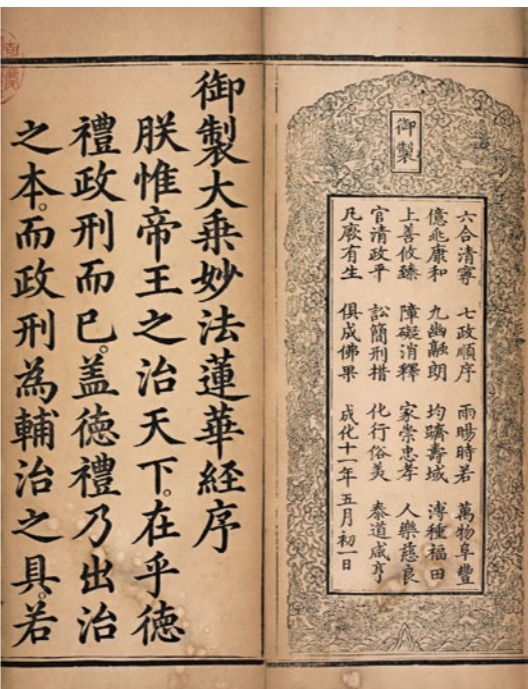 御製
六合清寧 七政順序 雨暘時若 萬物阜豐
億兆康和 九幽融朗 均躋壽域 溥種福田
上善攸臻 障礙消釋 家崇忠孝 人樂慈良
官清政平 訟簡刑措 化行俗美 泰道咸亨
凡厥有生 俱成佛果 成化十一年五月初一日
御製大乗妙法蓮華経序
朕惟帝王之治天下。在乎徳
禮政刑而已。盖徳禮乃出治
之本。而政刑為輔治之具。若